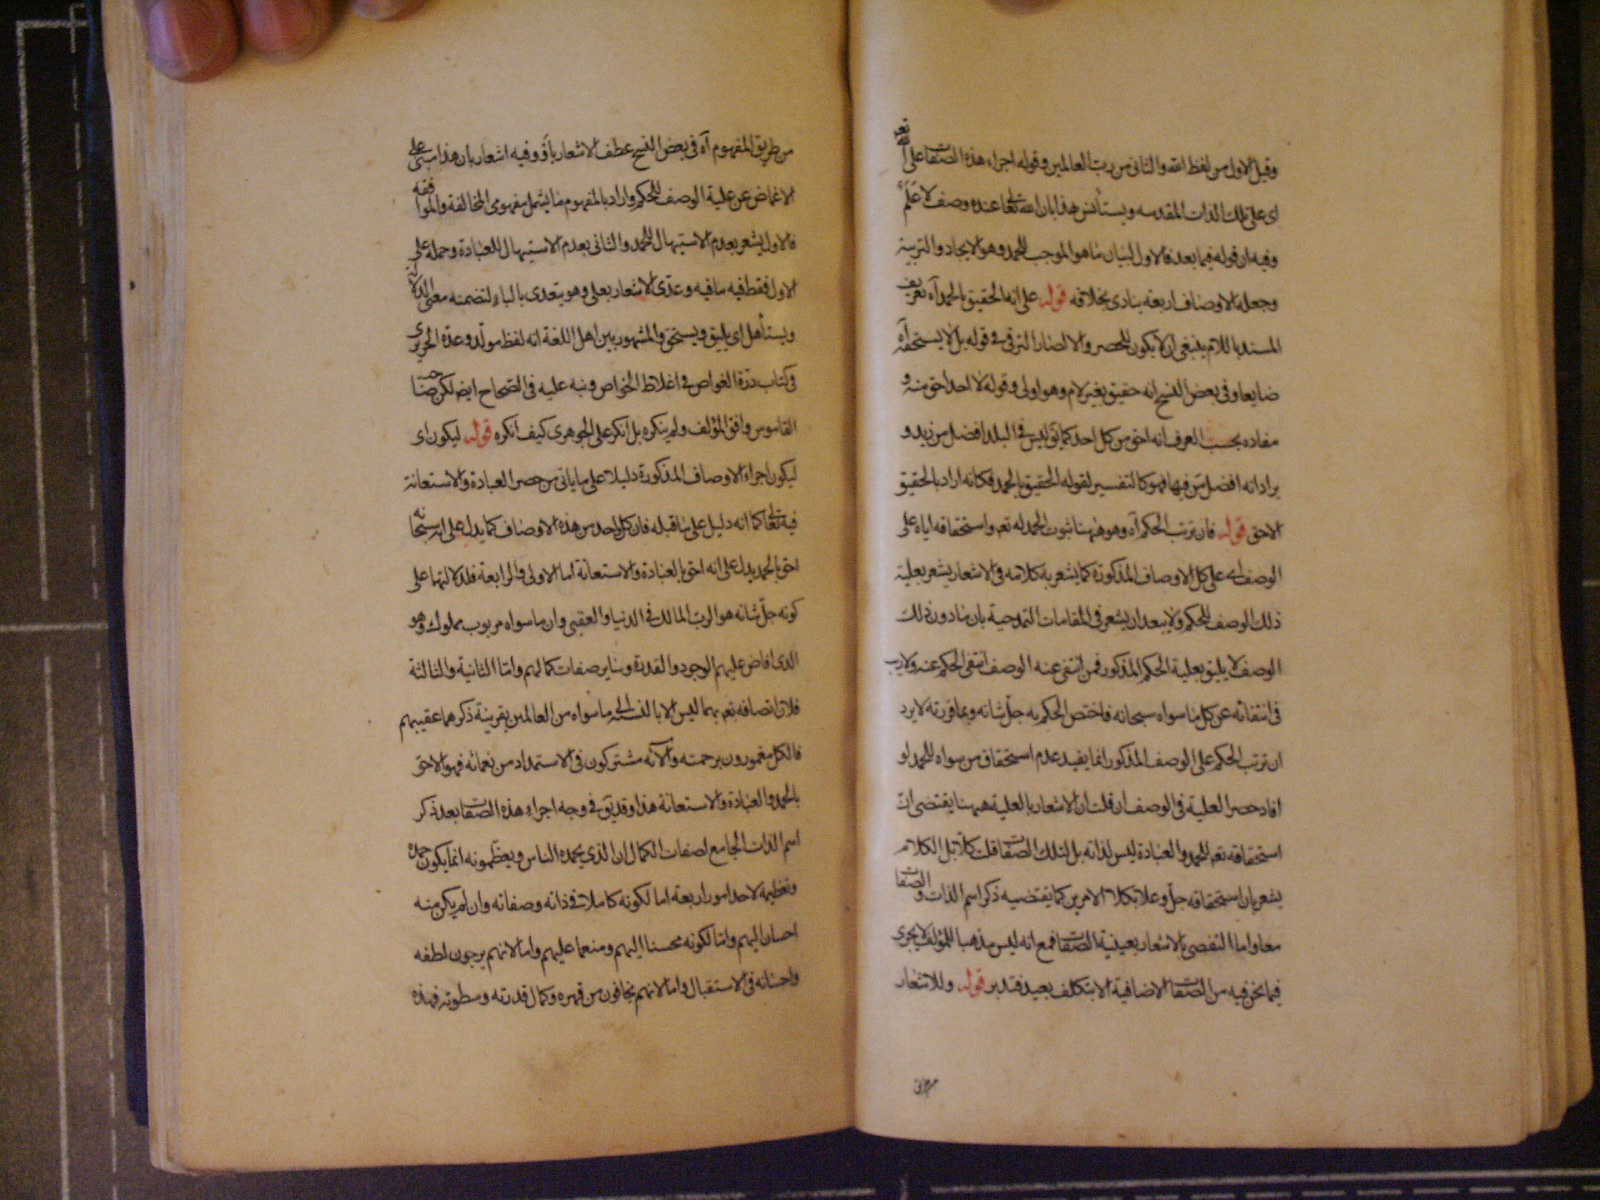 وقيل الاول من لفظ الله والثاني من رب العالمين وقوله اجراء هذه الصفات على الله تعـ
اى على تلك الذات المقدسه ويستأنس هذا بان الله تعالى عنده وصف لا علم
وفيه ان قوله فيما بعد فالاول لبيان ما هو الموجب للحمد وهو الايجاد والتربية
وجعله الاوصاف اربعة ينادى بخلافه قوله على انه الحقيق بالحمد آه تعريف
المسند باللام ينبغى ان لا يكون للحصر والا لصار الترقى فى قوله بل لا يستحقه آه
ضايعا وفى بعض النسخ انه حقيق بغير لام وهو اولى وقوله لا احد احق منه و
مفاده بحسب العرف انه احق من كل احد كما يق ليس فى البلد افضل من زيد و
يراد انه افضل من فيها فهو كالتفسير لقوله الحقيق بالحمد فكانه اراد بالحقيق
الاحق قوله فان ترتب الحكم آه وهو ههنا ثبوت الحمد له تعـ واستحقاقه اياه على
الوصف اى على كل الاوصاف المذكورة كما يشعر به كلامه فى الاشعار يشعر بعلية
ذلك الوصف للحكم ولا يبعد ان يشعر فى المقامات التمدحية بان ما دون ذلك
الوصف لا يليق بعلية الحكم المذكور فمن انتفى عنه الوصف انتفى الحكم عنه ولا ريب
فى انتفائه عن كل ما سواه سبحانه فاختص الحكم به جل شانه وبما قررته لا يرد
ان ترتب الحكم على الوصف المذكور انما يفيد عدم استحقاق من سواه للحمد لو
افاد حصر العلية فى الوصف ان قلت ان الاشعار بالعلية ههنا يقتضى ان
استحقاقه تعـ للحمد والعبادة ليس لذاته بل لتلك الصفات قلت كلا بل الكلام
يشعر بان استحقاقه جل وعلا بكلا الامرين كما يقتضيه ذكر اسم الذات والصفات
معا واما التفصى بالاشعار بعينية الصفات فمع انه ليس مذهبا للمؤلف لا يجرى
فيما نحن فيه من الصفات الاضافية الا بتكلف بعيد فتدبر قوله وللاشعار
من طريق المفهوم آه فى بعض النسخ عطف الاشعار باو وفيه اشعار بان هذا مبنى على
الاغماض عن علية الوصف للحكم واراد بالمفهوم ما يشمل مفهومى المخالفة والموافقه
فالاول يشعر بعدم الاستيهال للحمد والثانى بعدم الاستيهال للعبادة وحمله على
الاول فقط فيه ما فيه وعدى الاشعار بعلى وهو يتعدى بالباء لتضمنه معنى الدلالة
ويستأهل اى يليق ويستحق والمشهور بين اهل اللغة انه لفظ مولد وعده الحريرى
فى كتاب درة الغواص فى اغلاط الخواص ونبه عليه فى الصحاح ايضا لكن صاحب
القاموس وافق المؤلف ولم ينكره بل انكر على الجوهرى كيف انكره قوله ليكون اى
ليكون اجراء الاوصاف المذكورة دليلا على ما ياتى من حصر العبادة والاستعانة
فيه تعالى كما انه دليل على ما قبله فان كل واحد من هذه الاوصاف كما يدل على انه سبحانه
احق بالحمد يدل على انه احق بالعبادة والاستعانة اما الاولى والرابعة فلدلالتها على
كونه جل شانه هو الرب المالك فى الدنيا والعقبى وان ما سواه مربوب مملوك وهو
الذى افاض عليهم الوجود والقدرة وساير صفات كمالهم واما الثانية والثالثة
فلان اتصافه تعـ بهما ليس الا بالنسبة الى ما سواه من العالمين بقرينة ذكرهما عقيبهم
فالكل مغمورون برحمته والآئه مشتركون فى الاستمداد من نعمائه فهو الاحق
بالحمد والعبادة والاستعانة هذا وقد يق فى وجه اجراء هذه الصفات بعد ذكر
اسم الذات الجامع لصفات الكمال ان الذى يحمده الناس ويعظمونه انما يكون حمده
وتعظيمه لاحد امور اربعة اما لكونه كاملا فى ذاته وصفاته وان لم يكن منه
احسان اليهم واما لكونه محسنا اليهم ومنعما عليهم واما لانهم يرجون لطفه
واحسانه فى الاستقبال واما لانهم يخافون من قهره وكمال قدرته وسطوته فهذه